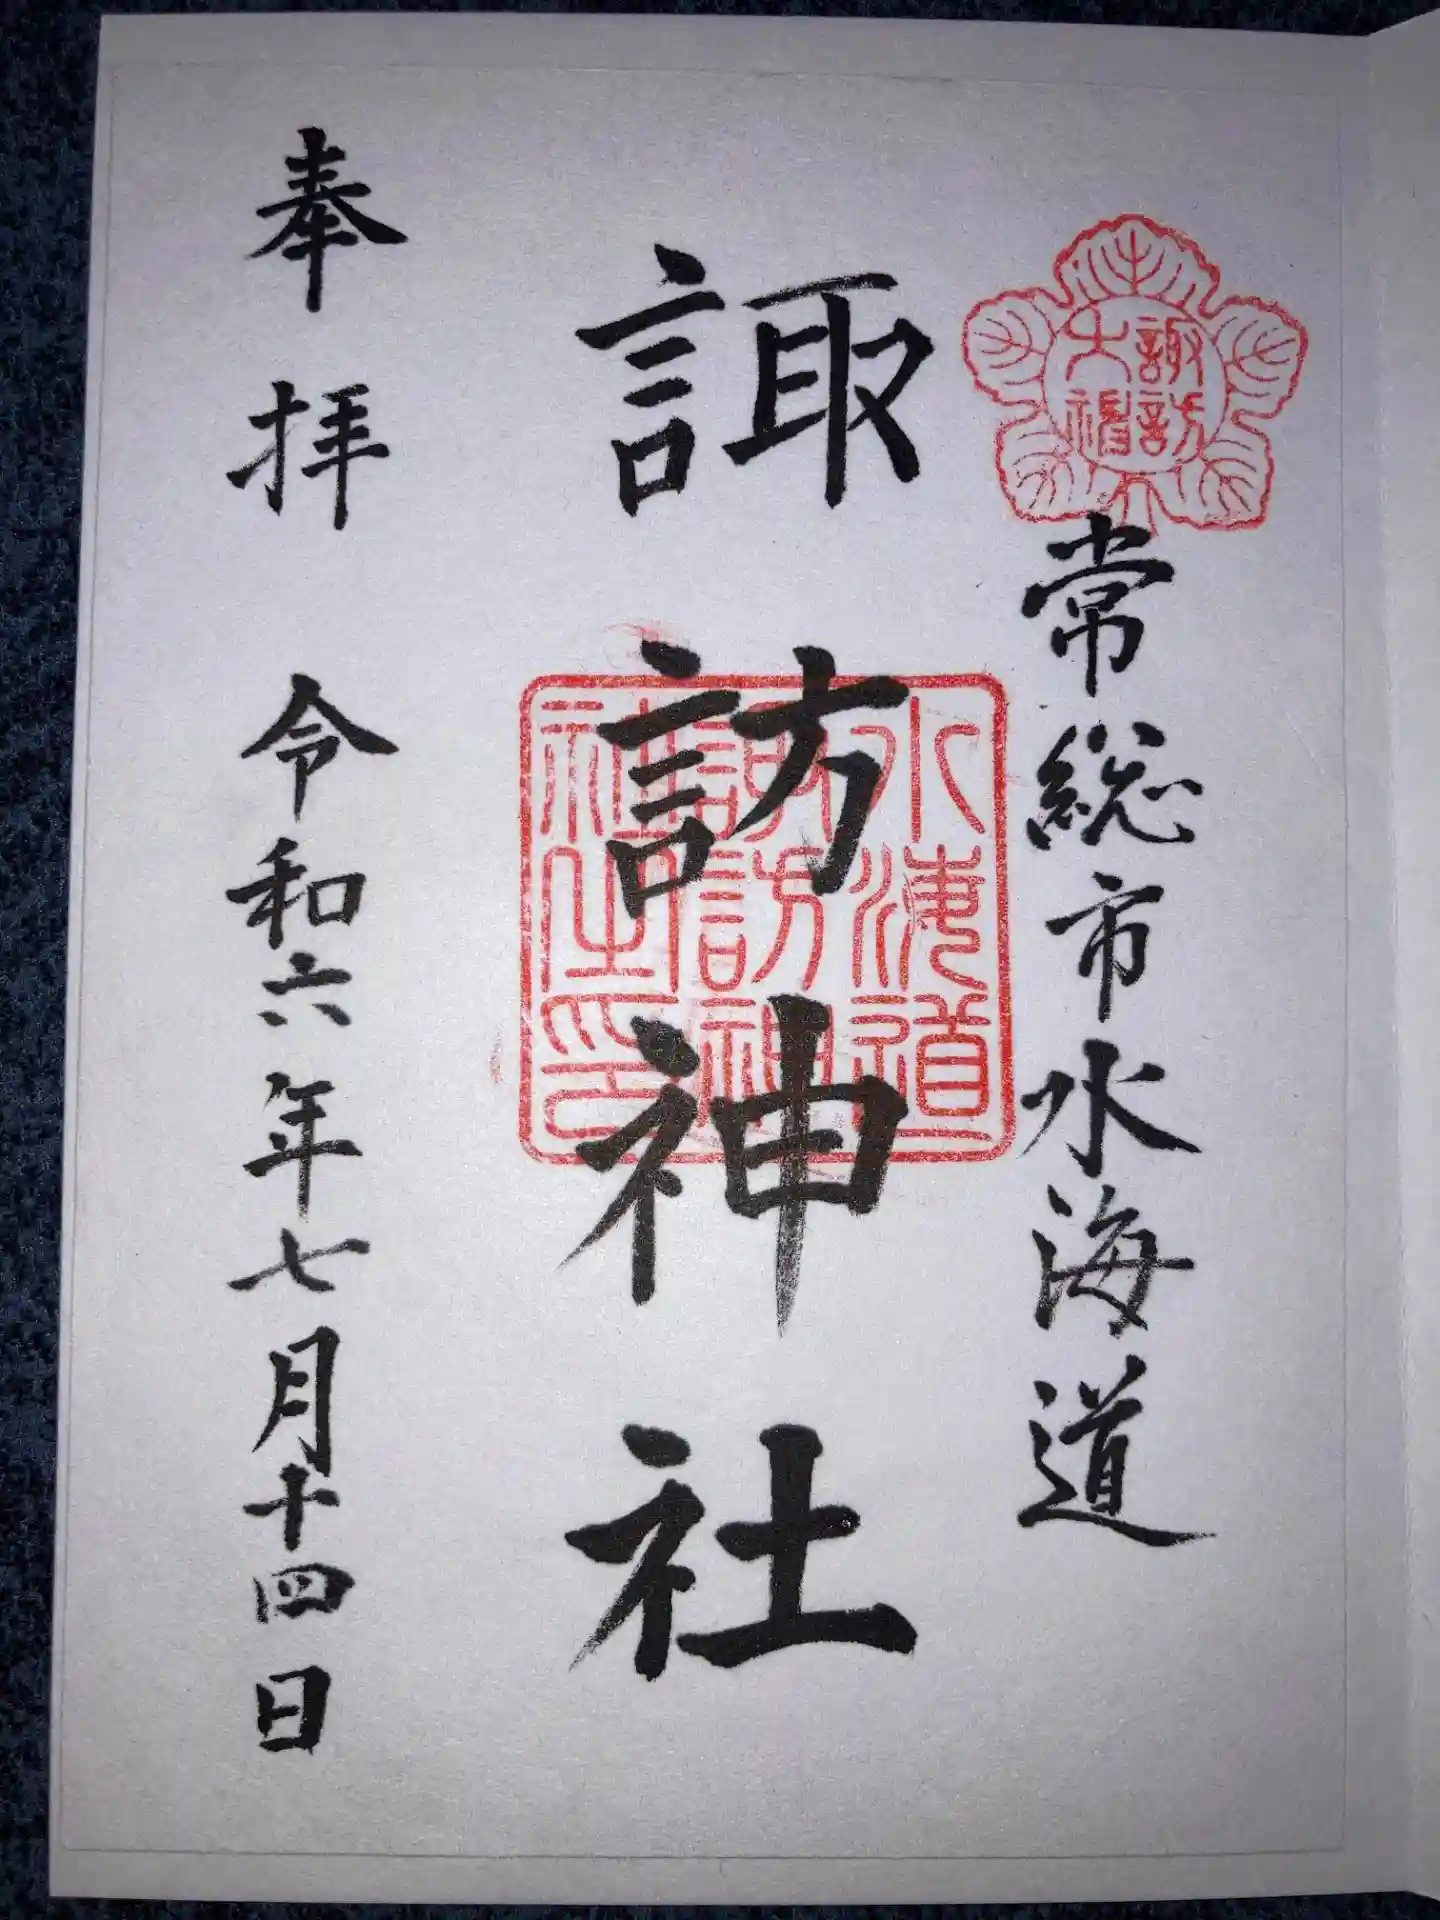 諏訪
大神
常総市水海道
諏訪神社
水海道
諏訪神
社之印
奉拝
令和六年七月十四日